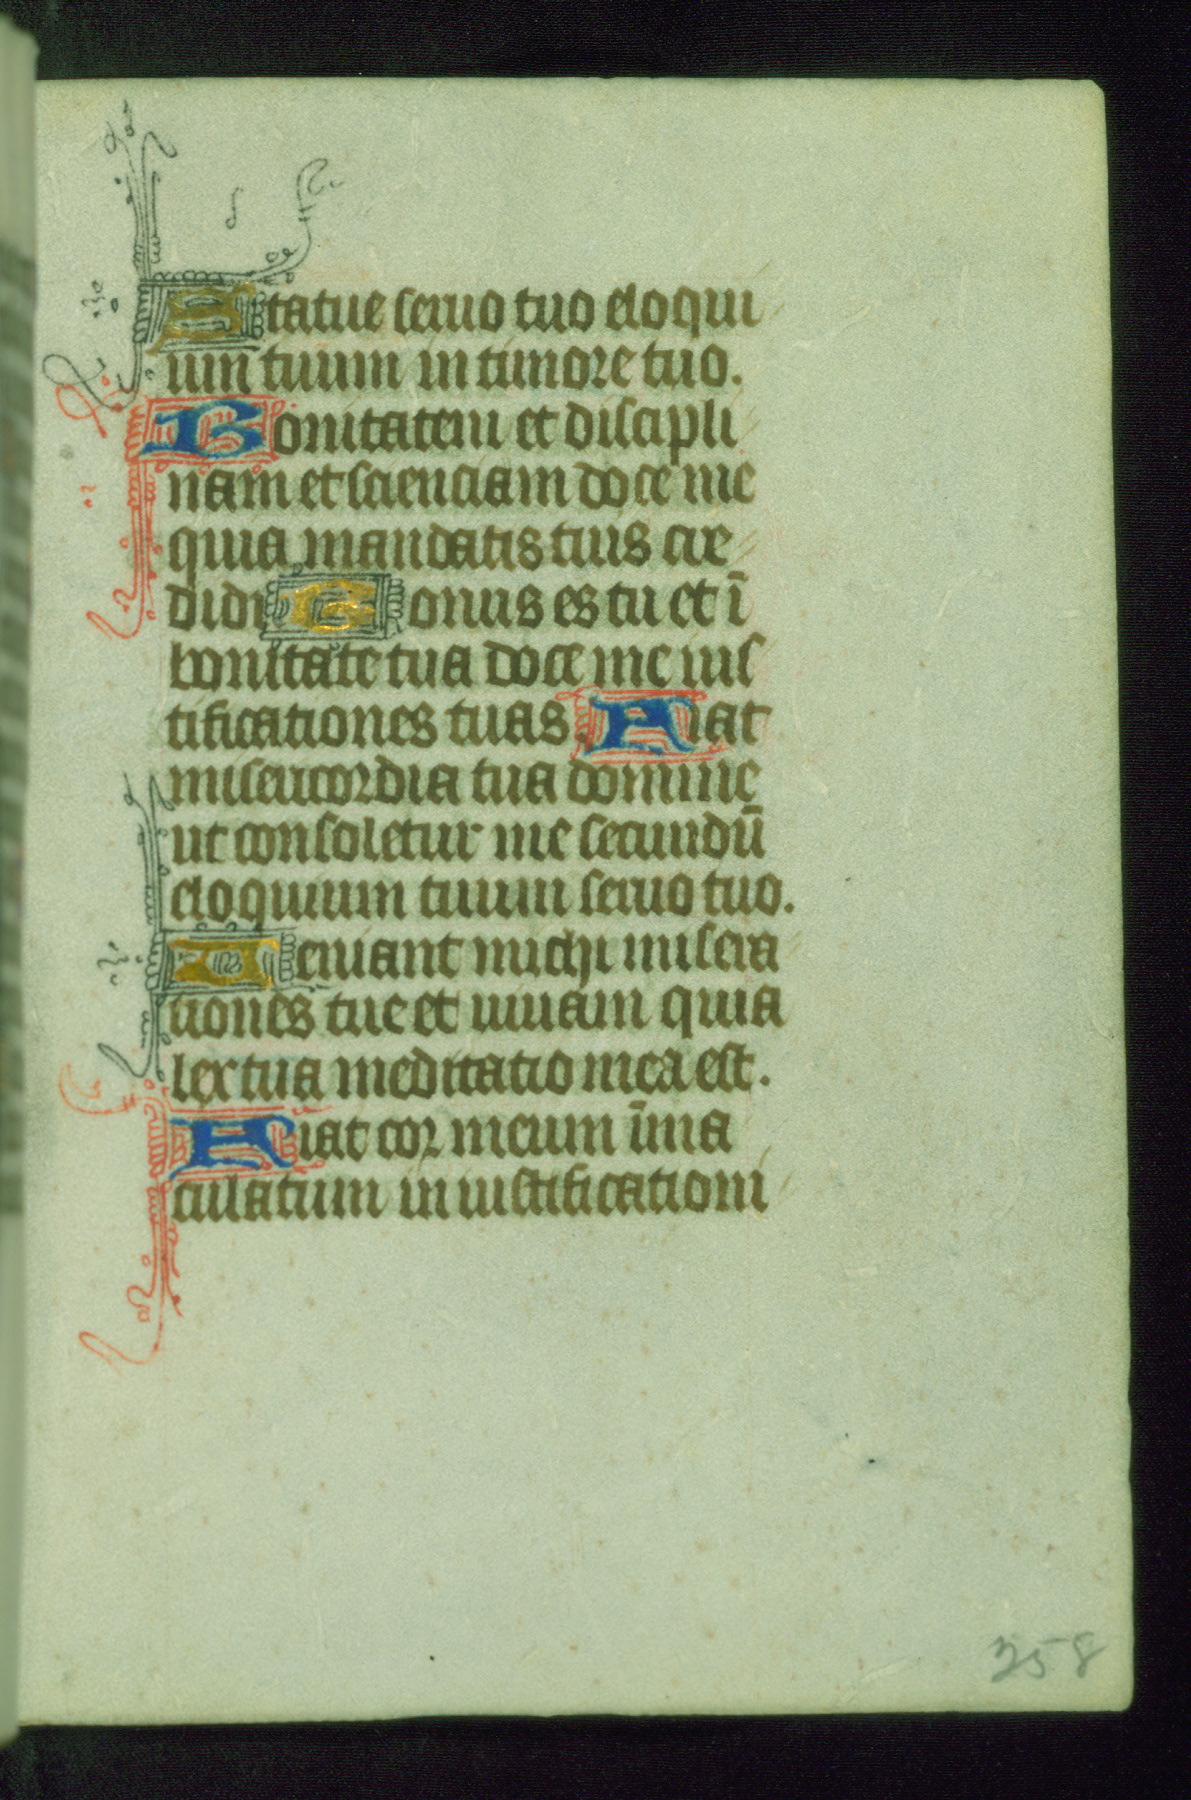 Statue seruo tuo eloqui
um tuum in timore tuo.
Bonitatem et discipli
nam et scienciam doce me
quia mandatis tuis cre
didi Bonus es tu et ī
bonitate tua doce me ius
tificationes tuas. Fiat
misericordia tua domine
ut consoletur me secundū
eloquium tuum seruo tuo.
Veniant michi misera
tiones tue et uiuam quia
lex tua meditatio mea est.
Fiat cor meum īma
culatum in iustificationi
358